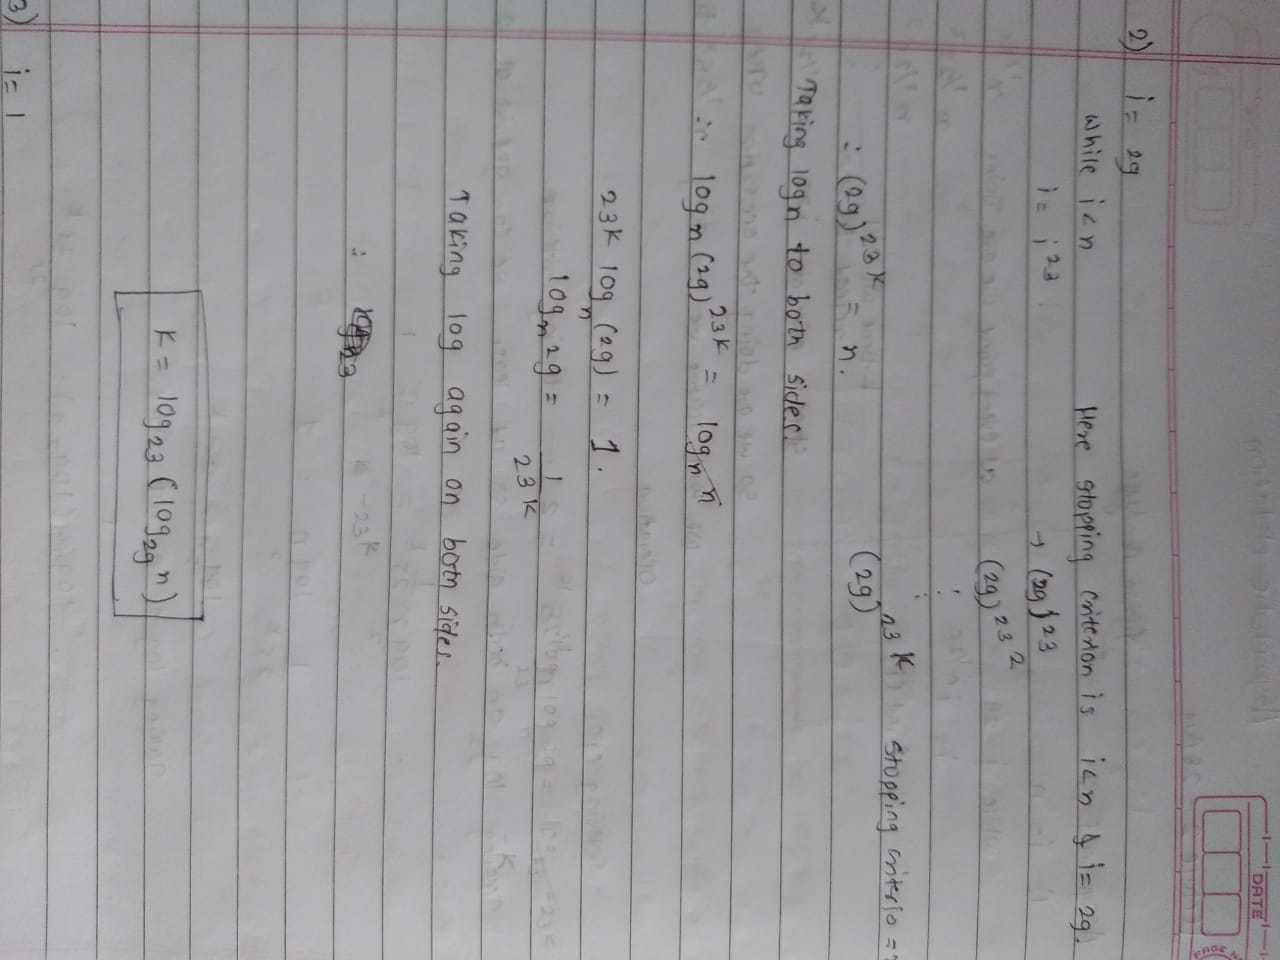 DATE
2) i = 29
While i < n Here stopping criterion is i < n & i = 29.
i = i^23 → (29)^23
(29)^23^2
⋮
(29)^23^K stopping criterio =
∴ (29)^23^K = n.
Taking log n to both sides.
∴ log_n (29)^23^K = log_n n
23^K log_n (29) = 1.
log_n 29 = 1/23^K
Taking log again on both sides.
∴
K = log_23 (log_29 n)
3) i = 1